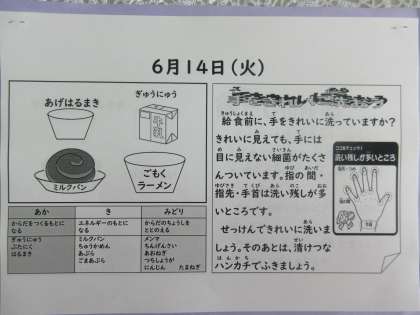 6月14日(火)
あげはるまき
ぎゅうにゅう
牛乳
ミルクパン
ごもく
ラーメン
あか
き
みどり
からだをつくるもとに
なる
エネルギーのもとに
なる
からだのちょうしを
ととのえる
ぎゅうにゅう
ぶたにく
はるまき
ミルクパン
ちゅうかめん
あぶら
ごまあぶら
メンマ
ちんげんさい
あおねぎ
つちしょうが
にんじん たまねぎ
給食前に、手をきれいに洗っていますか?
きれいに見えても、手には
目に見えない細菌がたくさ
んついています。指の間・
指先・手首は洗い残しが多
いところです。
せっけんできれいに洗いま
しょう。そのあとは、清けつな
ハンカチでふきましょう。
ココをチェック!
洗い残しが多いところ